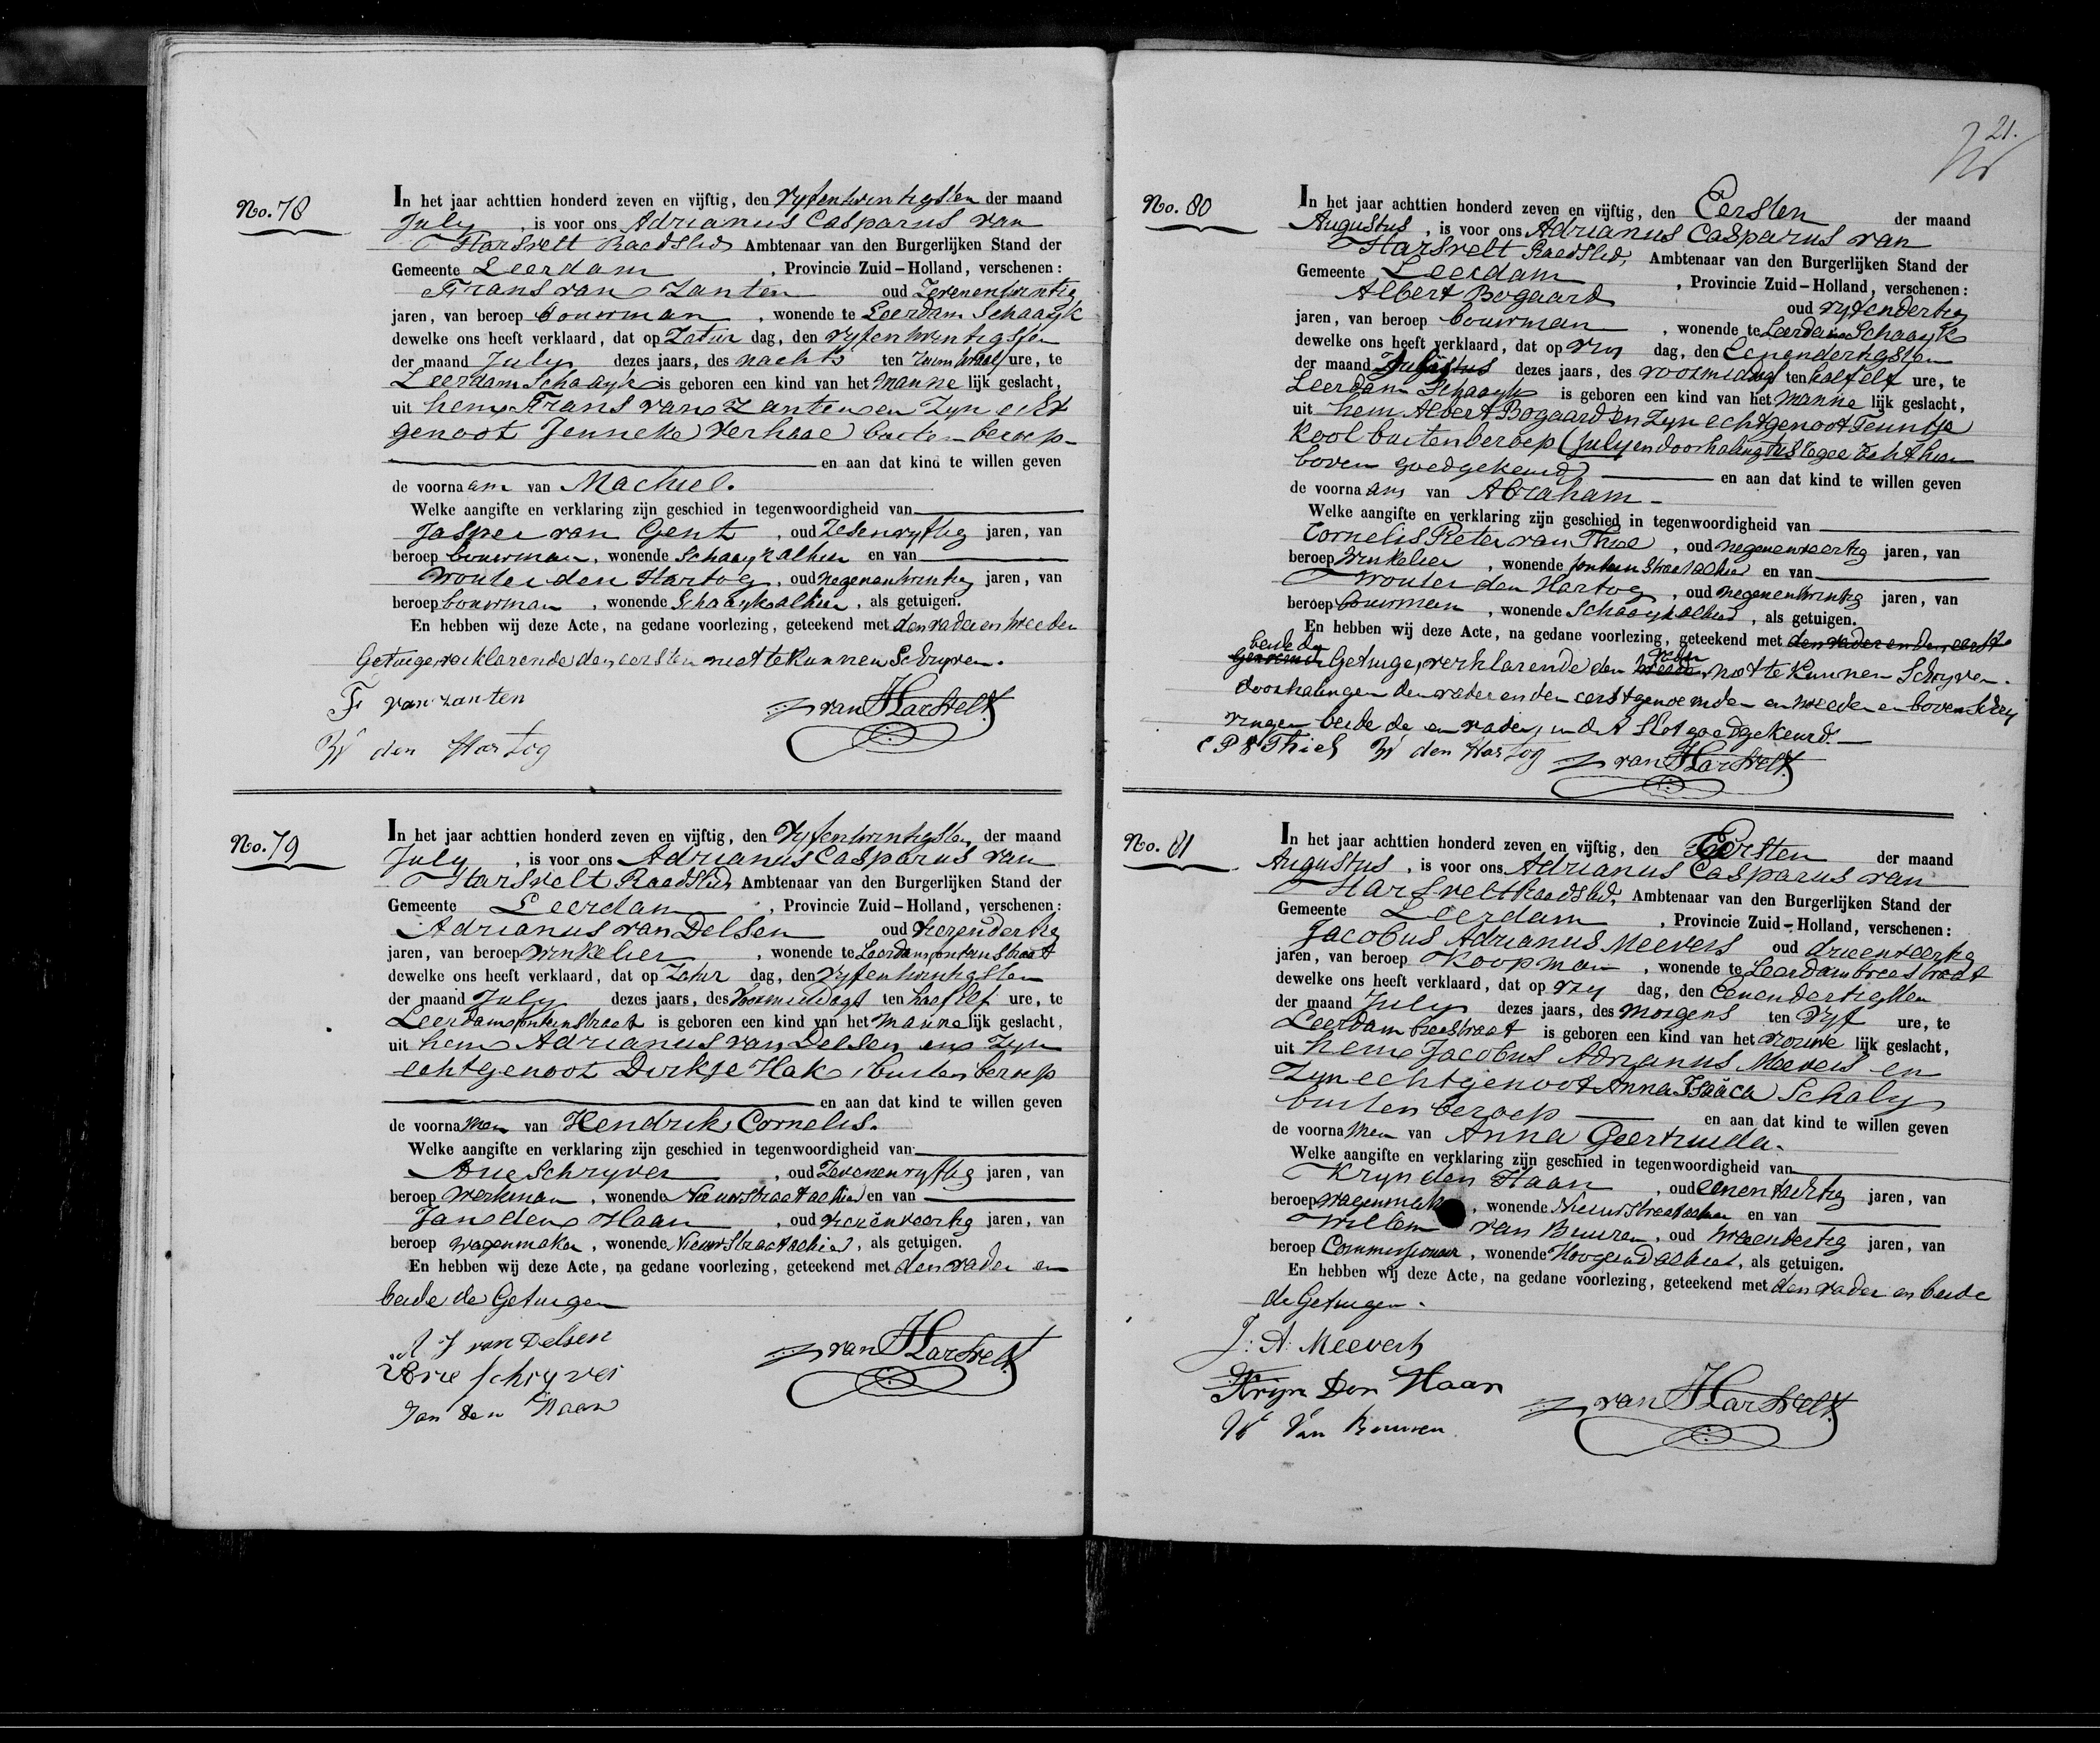 No. 78
In het jaar achttien honderd zeven en vijftig, den Vyfentwintigsten der maand
July, is voor ons Adrianus Casparus van
Harsvelt Raadslid Ambtenaar van den Burgerlijken Stand der
Gemeente Leerdam, Provincie Zuid-Holland, verschenen:
Frans van Zanten oud Zevenentwintig
jaren, van beroep bouwman, wonende te Leerdam Schaayk
dewelke ons heeft verklaard, dat op Zatur dag, den vyfentwintigsten
der maand July dezes jaars, des nachts ten twaalf ure, te
Leerdam Schaayk is geboren een kind van het manne lijk geslacht,
uit hem Frans van Zanten en Zyn echt
genoot Jenneke Verhaar buiten beroep
en aan dat kind te willen geven
de voornaam van Machiel.
Welke aangifte en verklaring zijn geschied in tegenwoordigheid van
Jasper van Gent, oud Zesenvyftig jaren, van
beroep bouwman, wonende Schaayk alhier en van
Wouter den Hartog, oud negenentwintig jaren, van
beroep bouwman, wonende Schaayk alhier, als getuigen.
En hebben wij deze Acte, na gedane voorlezing, geteekend met den vader en tweeden
Getuige, verklarende den eersten niet te Kunnen Schryven.
F van zanten
W den Hartog
van Harsvelt
No. 79
In het jaar achttien honderd zeven en vijftig, den Vyfentwintigsten der maand
July, is voor ons Adrianus Casparus van
Harsvelt Raadslid Ambtenaar van den Burgerlijken Stand der
Gemeente Leerdam, Provincie Zuid-Holland, verschenen:
Adrianus van Delsen oud vierendertig
jaren, van beroep Winkelier, wonende te Leerdam fonteinstraat
dewelke ons heeft verklaard, dat op Zatur dag, den vyfentwintigsten
der maand July dezes jaars, des Voormiddags ten half elf ure, te
Leerdam fonteinstraat is geboren een kind van het manne lijk geslacht,
uit hem Adrianus van Delsen en Zyn
echtgenoot Dirkje Hak buiten beroep
en aan dat kind te willen geven
de voornamen van Hendrik Cornelis.
Welke aangifte en verklaring zijn geschied in tegenwoordigheid van
Arie Schryver, oud Zevenenvyftig jaren, van
beroep Werkman, wonende Nieuwstraat alhier en van
Jan den Haan, oud vierenveertig jaren, van
beroep wagenmaker, wonende Nieuwstraat alhier, als getuigen.
En hebben wij deze Acte, na gedane voorlezing, geteekend met den vader en
beide de Getuigen
A J van Delsen
Arie schryver
Jan den Haan
van Harsvelt
21.
No. 80
In het jaar achttien honderd zeven en vijftig, den Eersten der maand
Augustus, is voor ons Adrianus Casparus van
Harsvelt Raadslid, Ambtenaar van den Burgerlijken Stand der
Gemeente Leerdam, Provincie Zuid-Holland, verschenen:
Albert Bogaard oud vyfendertig
jaren, van beroep bouwman, wonende te Leerdam Schaayk
dewelke ons heeft verklaard, dat op Vry dag, den Eenendertigsten
der maand dezes jaars, des voormiddags ten half elf ure, te
Leerdam Schaayk is geboren een kind van het manne lijk geslacht,
uit hem Albert Bogaard en Zyn echtgenoot Teuntje
Kool buiten beroep (July en doorhaling tus regel Zeht hier
boven goedgekeurd) en aan dat kind te willen geven
de voornaam van Abraham
Welke aangifte en verklaring zijn geschied in tegenwoordigheid van
Cornelis Pieter van Thiel, oud negenenveertig jaren, van
beroep Winkelier, wonende fonteinstraat alhier en van
Wouter den Hartog, oud negenentwintig jaren, van
beroep bouwman, wonende Schaayk alhier, als getuigen.
En hebben wij deze Acte, na gedane voorlezing, geteekend met den vader en den eerst
beide de
genoemde Getuige, verklarende den vader niet te Kunnen Schryven.
doorhalingen den vader en den eerstgenoemden en tweeden en bovenschry
vingen beide de en vader, in dit Slot goedgekeurd.
C P v Thiel W den Hartog van Harsvelt
No. 81
In het jaar achttien honderd zeven en vijftig, den Eersten der maand
Augustus, is voor ons Adrianus Casparus van
Harsvelt Raadslid, Ambtenaar van den Burgerlijken Stand der
Gemeente Leerdam, Provincie Zuid-Holland, verschenen:
Jacobus Adrianus Meevers oud drieenveertig
jaren, van beroep Koopman, wonende te Leerdam breestraat
dewelke ons heeft verklaard, dat op vry dag, den Eenendertigsten
der maand July dezes jaars, des morgens ten vyf ure, te
Leerdam breestraat is geboren een kind van het vrouwe lijk geslacht,
uit hem Jacobus Adrianus Meevers en
Zyn echtgenoot Anna Isaäca Schaly
buiten beroep en aan dat kind te willen geven
de voornamen van Anna Geertruida.
Welke aangifte en verklaring zijn geschied in tegenwoordigheid van
Kryn den Haan, oud eenentachtig jaren, van
beroep wagenmak, wonende Nieuwstraat alhier en van
Willem van Buuren, oud tweeendertig jaren, van
beroep Commissionair, wonende Hoogeind alhier, als getuigen.
En hebben wij deze Acte, na gedane voorlezing, geteekend met den vader en beide
de Getuigen.
J: A: Meevers
Kryn Den Haan
W Van Buuren
van Harsvelt